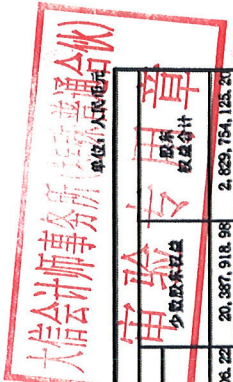 大信会计师事务所(特殊普通合伙)
审验专用章
单位：人民币元
少数股东权益
股东
权益合计
06.22
20,387,918.98
2,829,754,125.20